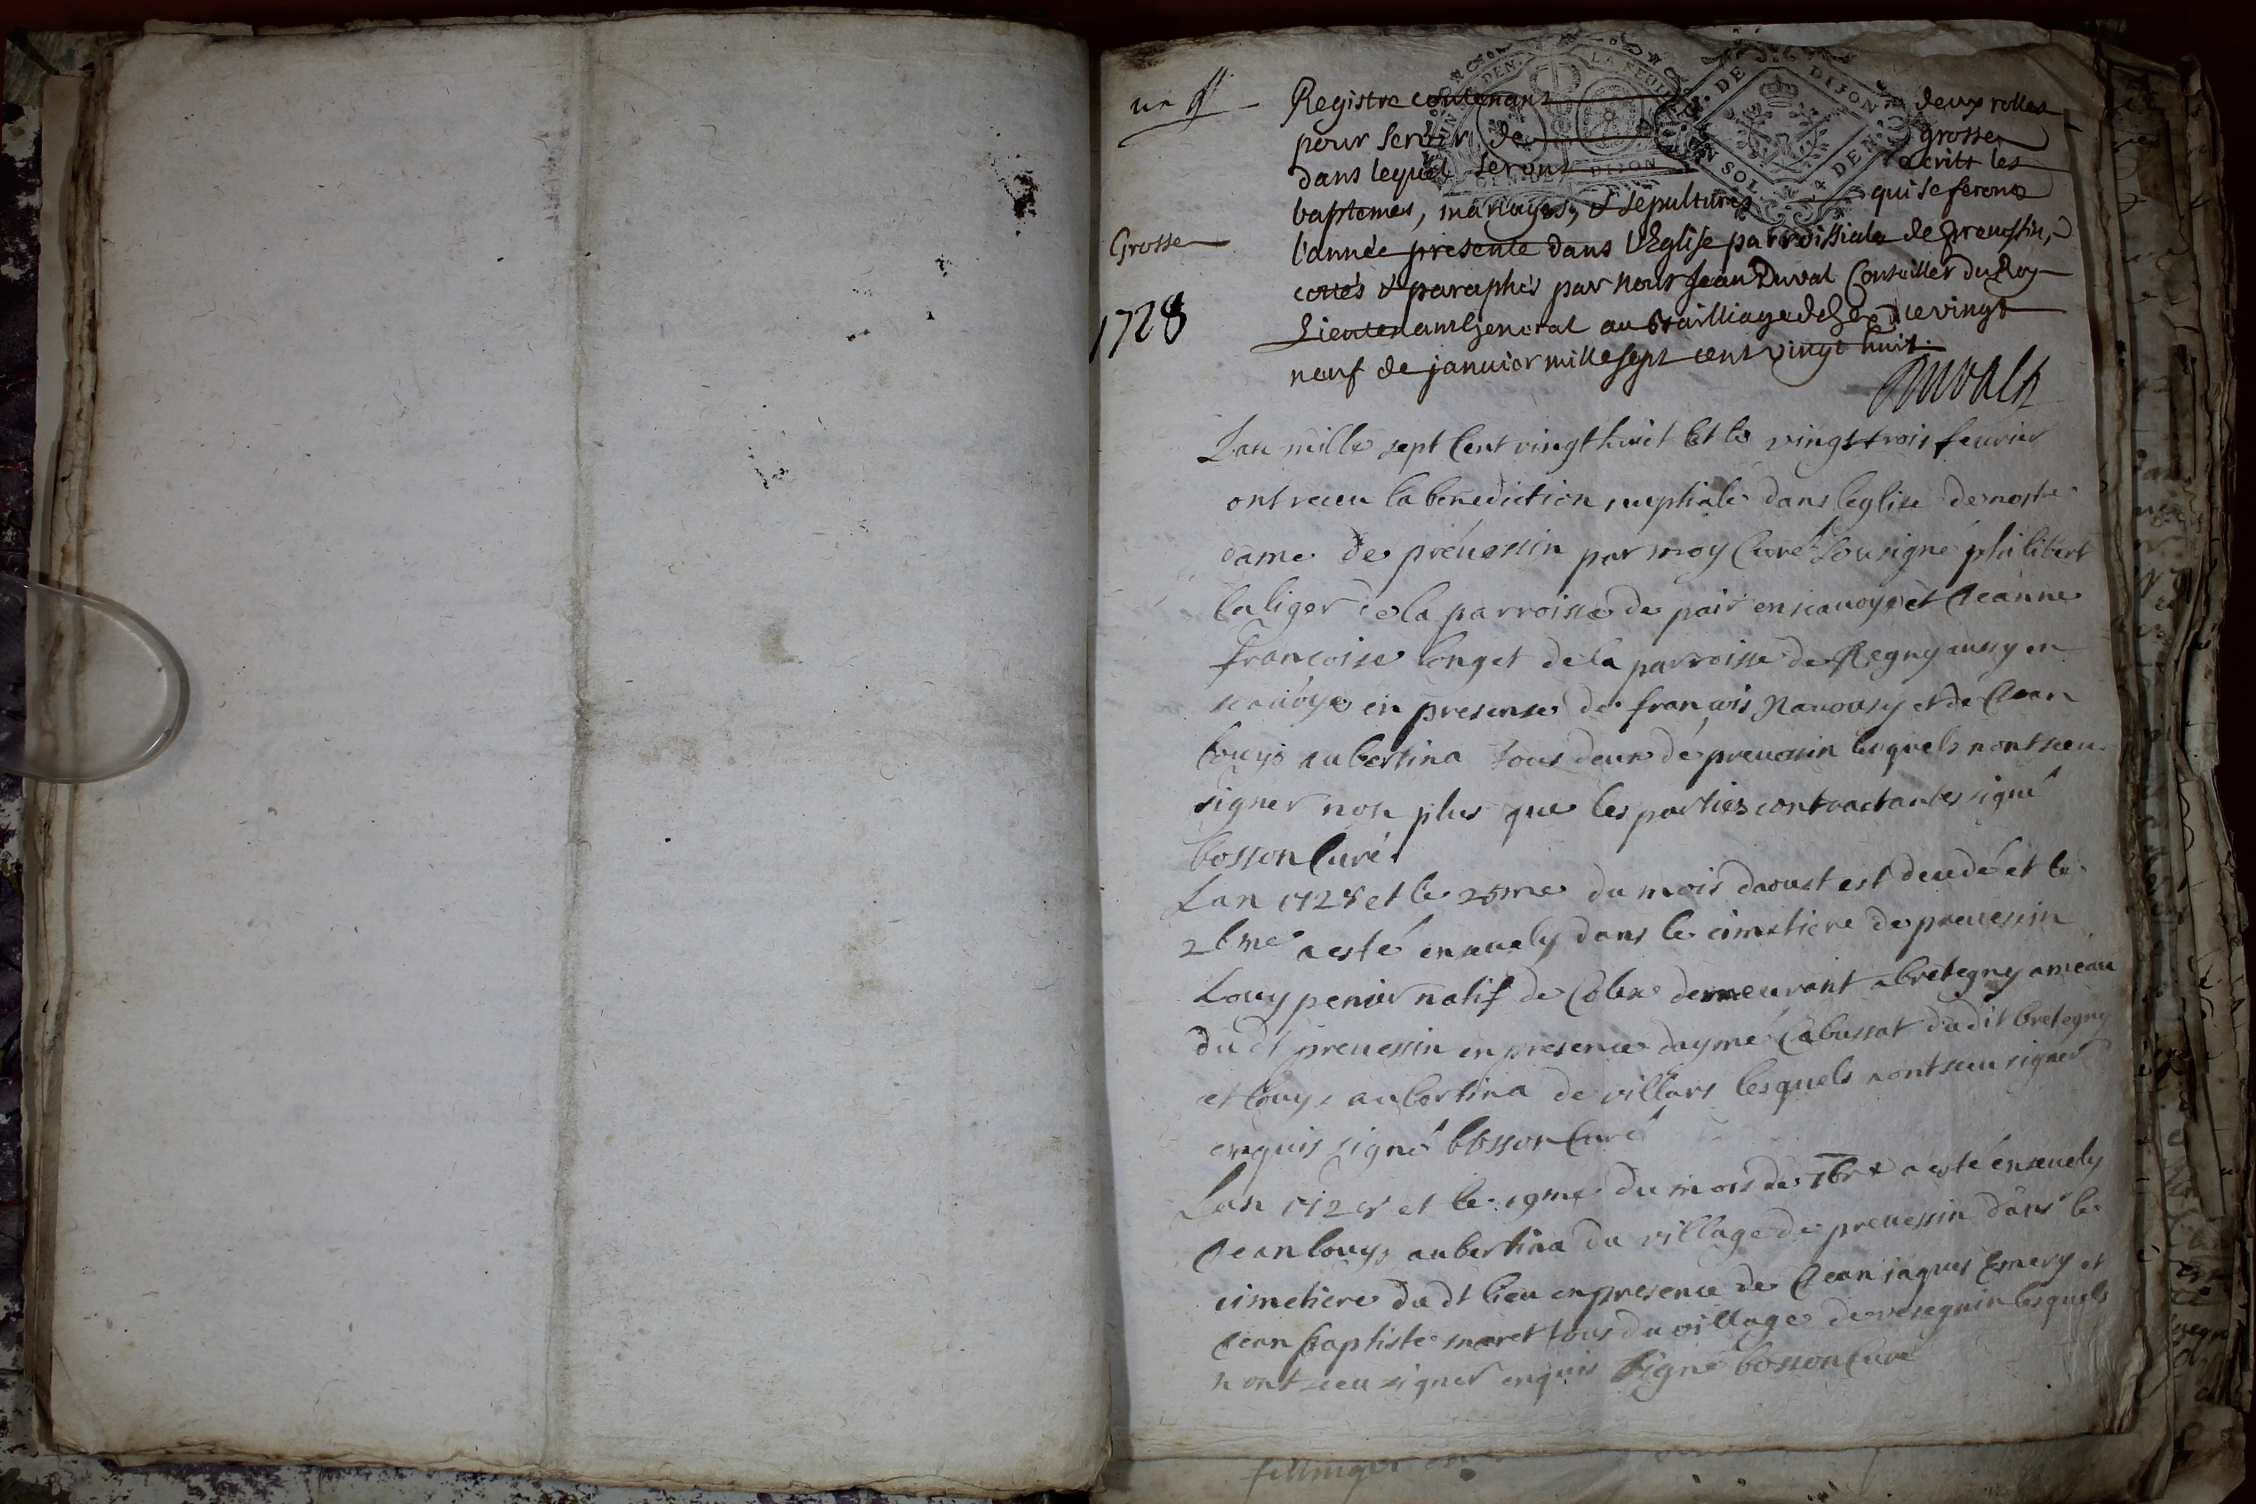 un
Registre contenant deux rolles
pour servir de grosse
dans lequel seront ecrits les
baptemes, mariages, & sepultures qui se feront
Grosse
l'année presente dans l'Eglise parroissiale de prevessin,
cottés & paraphés par nous Jean Duval Conseiller du Roy
1728
Lieutenant General au Bailliage de Gex ce vingt
neuf de janvier mille sept cent vingt huit.
Duval
GEN. DE DIJON
LA FEUILLE
G. DE DIJON
UN SOL 4 DEN.
Lan mille sept cent vingt huict et le vingt trois feurier
ont receu la benediction nuptiale dans leglise de nostre
dame de preuessin par moy Curé sousigné philibert
de la parroisse de pair en scauoye et Jeanne
francoise longet de la parroisse de Regny aussy en
scauoye en presense de francois et de Jean
louys aubertina tous deux de preuessin lesquels nont sceu
signer non plus que les parties contractantes signé
bosson Curé
Lan 1728 et le 25me du mois daoust est decedé et le
26me a esté enseuely dans le cimetiere de preuessin
Louy penir natif de Colex demeurant a bretegny ameau
du dt preuessin en presence daymé Cabussat dudit bretegny
et louys aubertina de villars lesquels nont sceu signer
enquis signé bosson Curé
Lan 1728 et le 19me du mois de 7bre a esté enseuely
Jean louys aubertina du village de preuessin dans le
cimetiere du dt lieu en presence de Jean jaques Emery et
Jean baptiste maret tous du village de vesegnin lesquels
nont sceu signer enquis signé bosson Curé